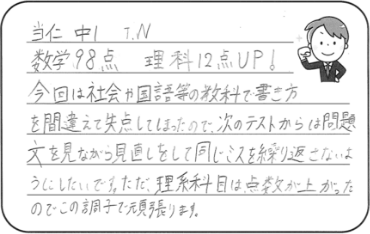 当仁 中1 T.N
数学98点 理科12点UP!
今回は社会や国語等の教科で書き方
を間違えて失点してしまったので、次のテストからは問題
文を見ながら見直しをして同じミスを繰り返さないよ
うにしたいです。ただ、理系科目は点数が上がった
のでこの調子で頑張ります。